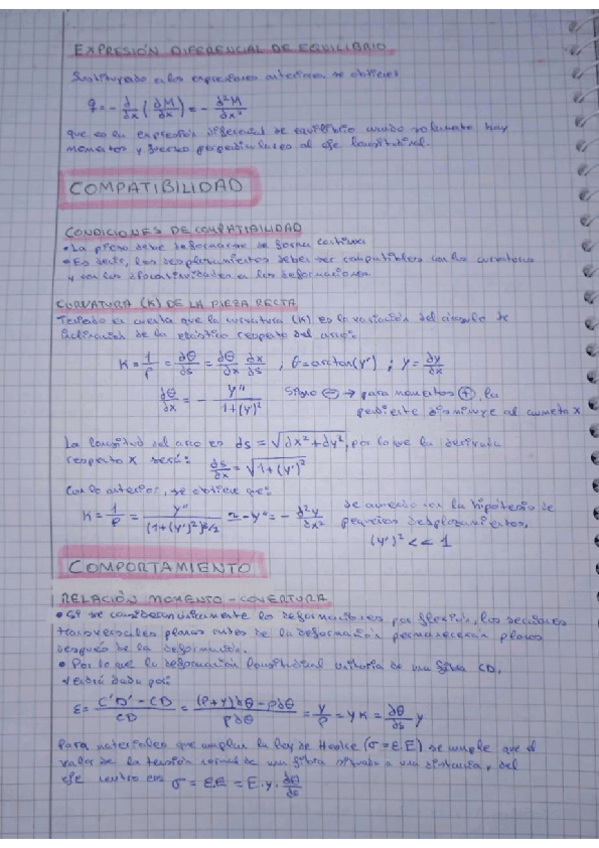 EXPRESIÓN DIFERENCIAL DE EQUILIBRIO
Sustituyendo en las expresiones anteriores se obtiene:
q = - d/dx (dM/dx) = - d²M/dx²
que es la expresión diferencial de equilibrio cuando solamente hay
momentos y fuerzas perpendiculares al eje longitudinal.
COMPATIBILIDAD
CONDICIONES DE COMPATIBILIDAD
• La pieza debe deformarse de forma continua
• Es decir, los desplazamientos deben ser compatibles con la curvatura
y con las
en las deformaciones
CURVATURA (K) DE LA PIEZA RECTA
Teniendo en cuenta que la curvatura (K) es la variación del ángulo de
inclinación de la elástica respecto del arco:
K = 1/ρ = dθ/ds = dθ/dx dx/ds ; θ = arctan(y') ; y' = dy/dx
dθ/dx = - y''/1+(y')²
Signo ⊖ → para momentos ⊕, la
pendiente disminuye al aumentar x
La longitud del arco es ds = √dx²+dy², por lo que la derivada
respecto x será: ds/dx = √1+(y')²
Con lo anterior, se obtiene que:
K = 1/ρ = y''/(1+(y')²)3/2 ≃ -y'' = - d²y/dx²
de acuerdo con la hipótesis de
pequeños desplazamientos,
(y')² << 1
COMPORTAMIENTO
RELACIÓN MOMENTO-CURVATURA
• Si se consideran únicamente las deformaciones por flexión, las secciones
transversales planas antes de la deformación permanecerán planas
después de la deformación.
• Por lo que la deformación longitudinal unitaria de una fibra CD,
vendrá dada por:
ε = C'D' - CD/CD = (ρ+y)dθ - ρdθ/ρdθ = y/ρ = yK = dθ/ds y
Para materiales que cumplan la ley de Hooke (σ = ε.E) se cumple que el
valor de la tensión normal de una fibra situada a una distancia y del
eje neutro es σ = ε.E = E·y·dθ/ds